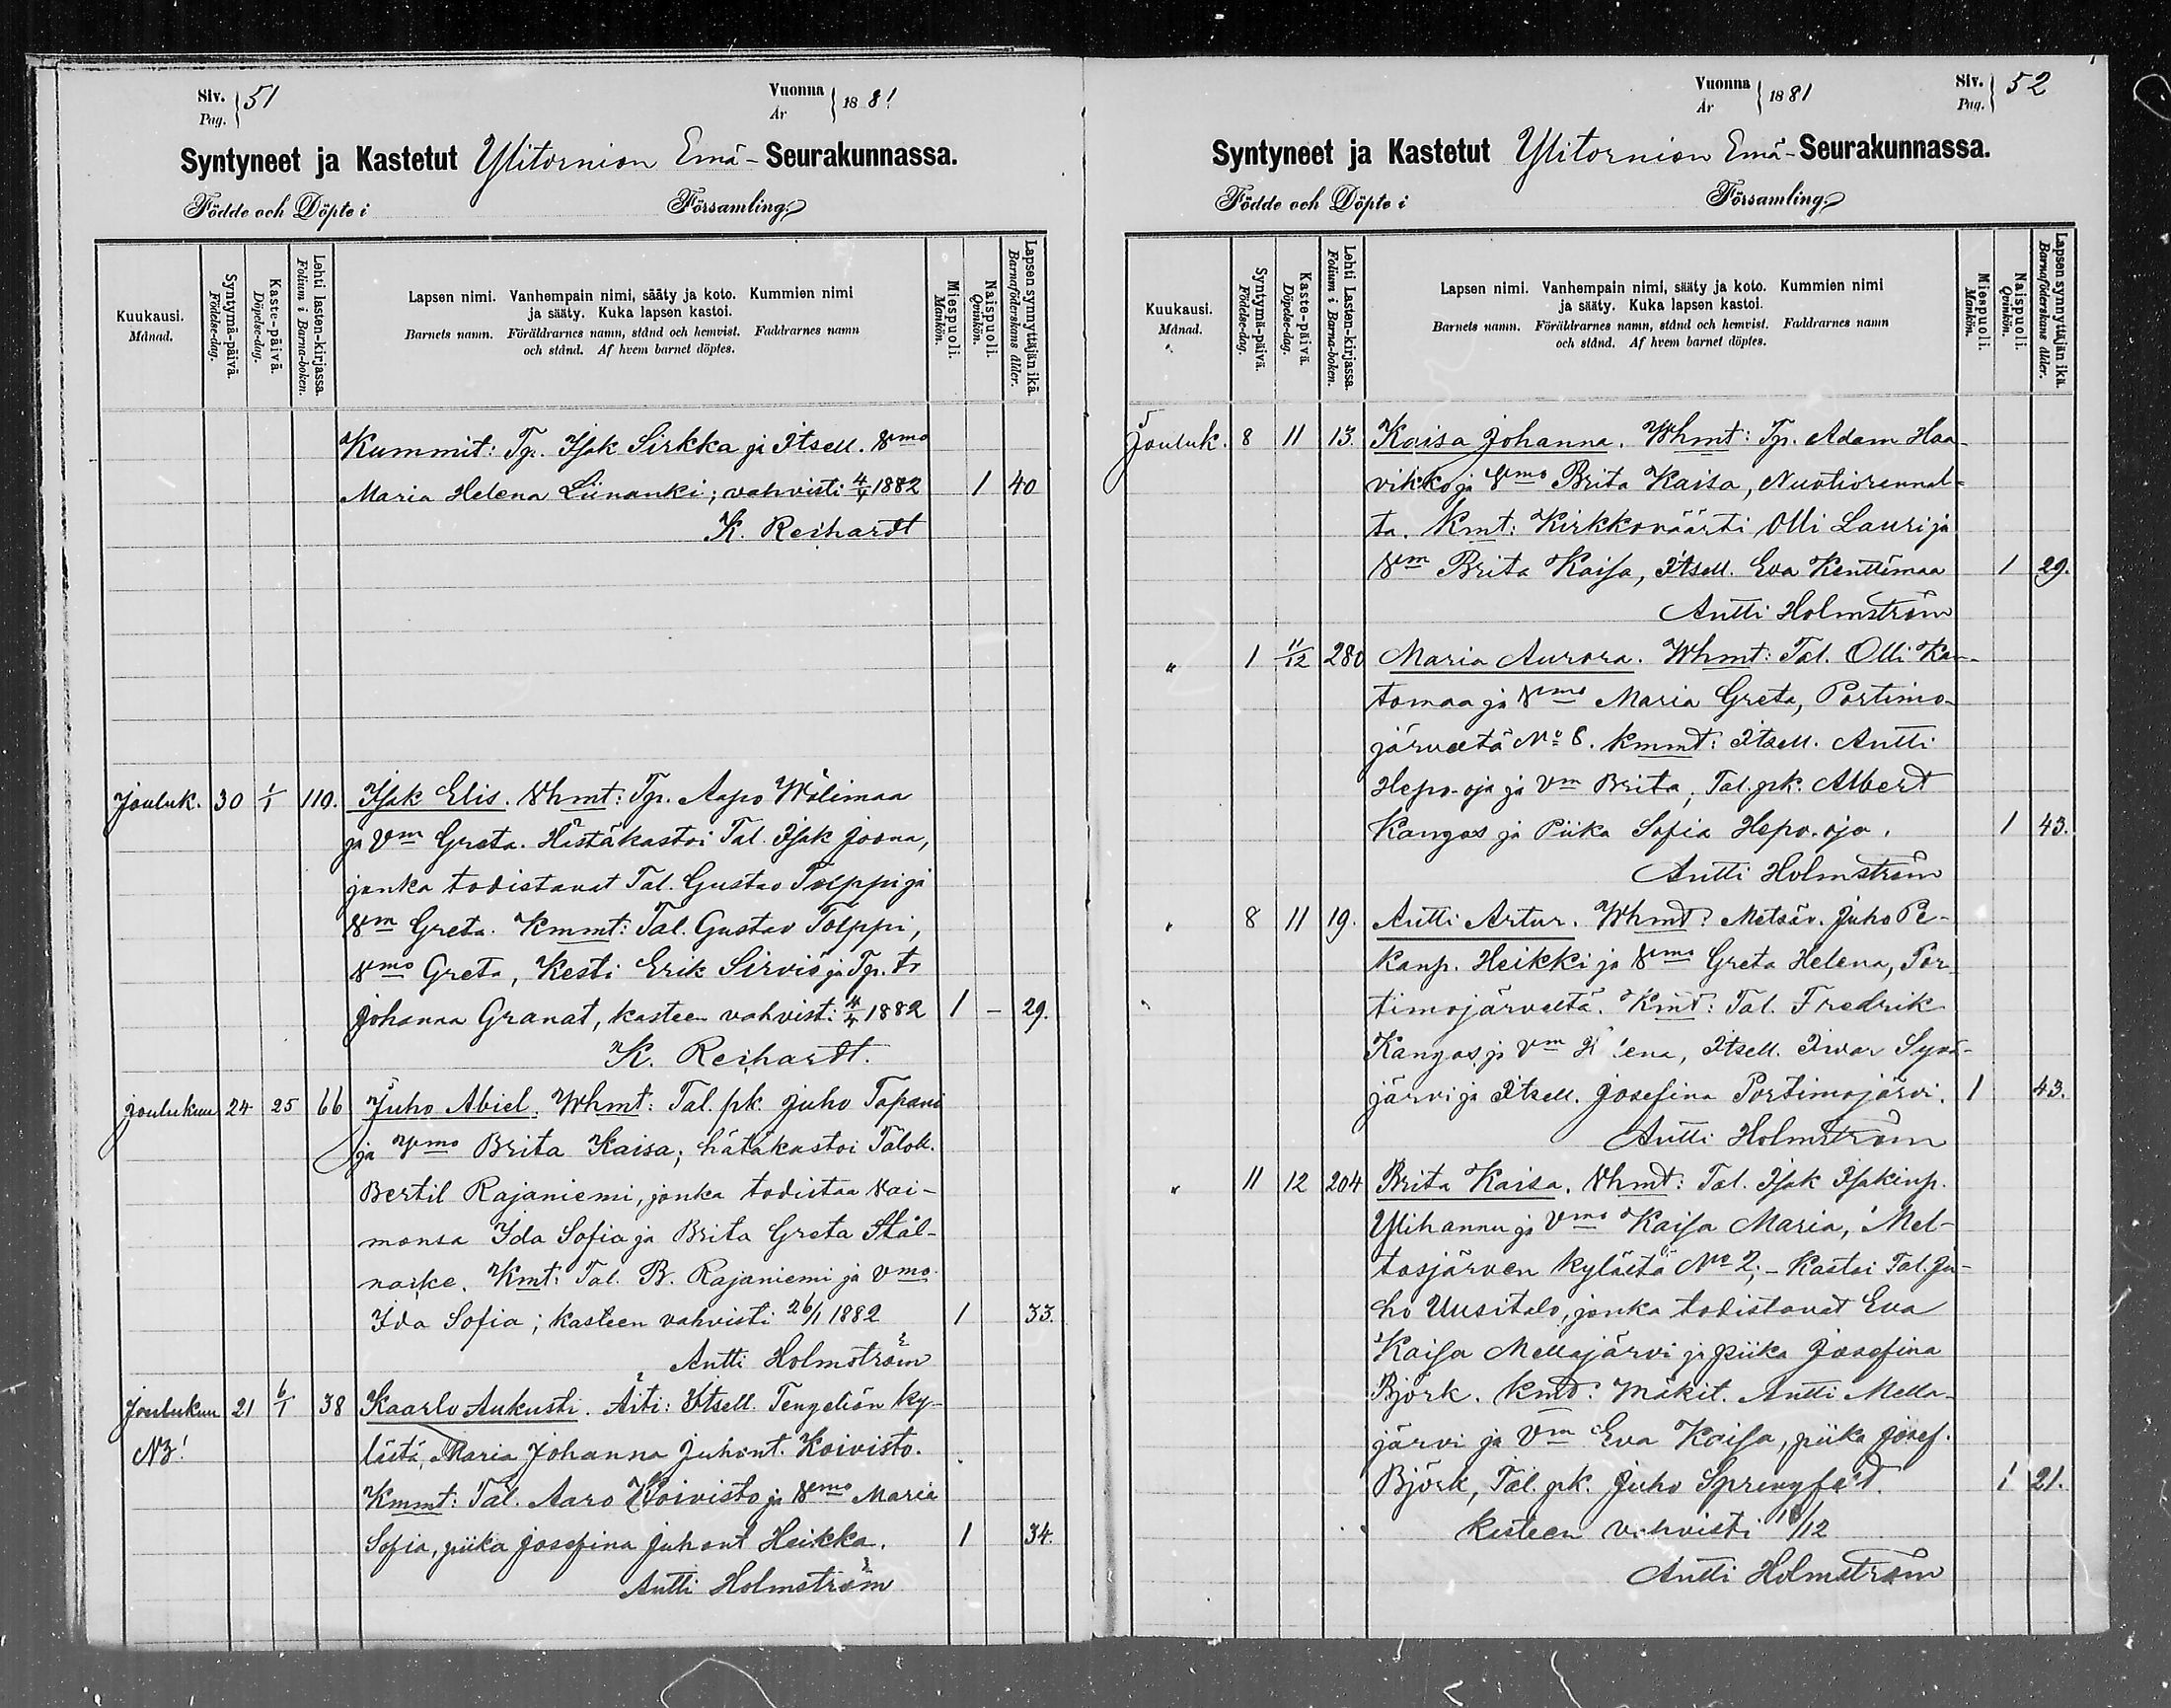 Siv. Pag. 51
Vuonna År 1881
Syntyneet ja Kastetut Ylitornion Emä-Seurakunnassa.
Födde och Döpte i Församling.
Kuukausi. Månad.
Syntymä-päivä. Födelse-dag.
Kaste-päivä. Döpelse-dag.
Lehti lasten-kirjassa. Folium i Barna-boken.
Lapsen nimi. Vanhempain nimi, sääty ja koto. Kummien nimi
ja sääty. Kuka lapsen kastoi.
Barnets namn. Föräldrarnes namn, stånd och hemvist. Faddrarnes namn
och stånd. Af hvem barnet döptes.
Miespuoli. Mankön.
Naispuoli. Qvinkön.
Lapsen synnyttäjän ikä. Barnaföderskans ålder.
Kummit: Tp. Isak Sirkka ja Itsell. Vmo
Maria Helena Liinanki; vahvisti 4/4 1882 1 40
K. Reihardt
Jouluk. 30 1/1 119. Isak Elis. Vhmt: Tp. Aapo Wälimaa
ja Vm Greta. Hätäkastoi Tal. Isak Joona,
jonka todistavat Tal. Gustav Tolppi ja
Vm Greta. Kmmt: Tal. Gustav Tolppi,
Vmo Greta, Kesti Erik Sirviö ja Tp. tr
Johanna Granat, kasteen vahvisti 4/4 1882 1 – 29.
K. Reihardt.
Joulukuu 24 25 66 Juho Abiel. Whmt: Tal. pk. Juho Tapani
ja Vmo Brita Kaisa; hätäkastoi Talok.
Bertil Rajaniemi, jonka todistaa vai-
monsa Ida Sofia ja Brita Greta Stål-
nacke. Kmt: Tal. B. Rajaniemi ja Vmo
Ida Sofia; kasteen vahvisti 26/1 1882 1 33.
Antti Holmström
Joulukuu 21 6/1 38 Kaarlo Aukusti. Äiti: Itsell. Tengeliön ky-
NB! lästä, Maria Johanna Juhont. Koivisto.
Kmmt: Tal. Aaro Koivisto ja Vmo Maria
Sofia, piika Josefina Juhont Heikka. 1 34.
Antti Holmström
Vuonna År 1881
Siv. Pag. 52
Syntyneet ja Kastetut Ylitornion Emä-Seurakunnassa.
Födde och Döpte i Församling.
Kuukausi. Månad.
Syntymä-päivä. Födelse-dag.
Kaste-päivä. Döpelse-dag.
Lehti Lasten-kirjassa. Folium i Barna-boken.
Lapsen nimi. Vanhempain nimi, sääty ja koto. Kummien nimi
ja sääty. Kuka lapsen kastoi.
Barnets namn. Föräldrarnes namn, stånd och hemvist. Faddrarnes namn
och stånd. Af hvem barnet döptes.
Miespuoli. Mankön.
Naispuoli. Qvinkön.
Lapsen synnyttäjän ikä. Barnaföderskans ålder.
Jouluk. 8 11 13. Kaisa Johanna. Whmt: Tp. Adam Haa-
vikko ja Vmo Brita Kaisa, Nuotiorannal-
ta. Kmt: Kirkkoväärti Olli Lauri ja
Vm Brita Kaisa, Itsell. Eva Kenttämaa 1 29.
Antti Holmström
" 1 11/12 280 Maria Aurora. Whmt: Tal. Olli Kan-
tomaa ja Vmo Maria Greta, Portimo-
järveltä No 8. Kmmt: Itsell. Antti
Hepo-oja ja Vm Brita, Tal. pk. Albert
Kangas ja Piika Sofia Hepo-oja. 1 43.
Antti Holmström
" 8 11 19. Antti Artur. Whmt: Metsäv. Juho Pe-
kanp. Heikki ja Vmo Greta Helena, Por-
timojärveltä. Kmt: Tal. Fredrik
Kangas ja Vm Itsell. Iwar Syvä-
järvi ja Itsell. Josefina Portimojärvi. 1 43.
Antti Holmström
" 11 12 204 Brita Kaisa. Vhmt: Tal. Isak Isakinp.
Ylihannu ja Vmo Kaisa Maria, Mel-
tosjärven kylästä No 2; – Kastoi Tal. Ju-
ho Uusitalo, jonka todistavat Eva
Kaisa Mellajärvi ja piika Josefina
Björk. Kmt: Mäkit. Antti Mella-
järvi ja Vm Eva Kaisa, piika Josef.
Björk, Tal. pk. Juho 1 21.
kasteen vahvisti /12
Antti Holmström